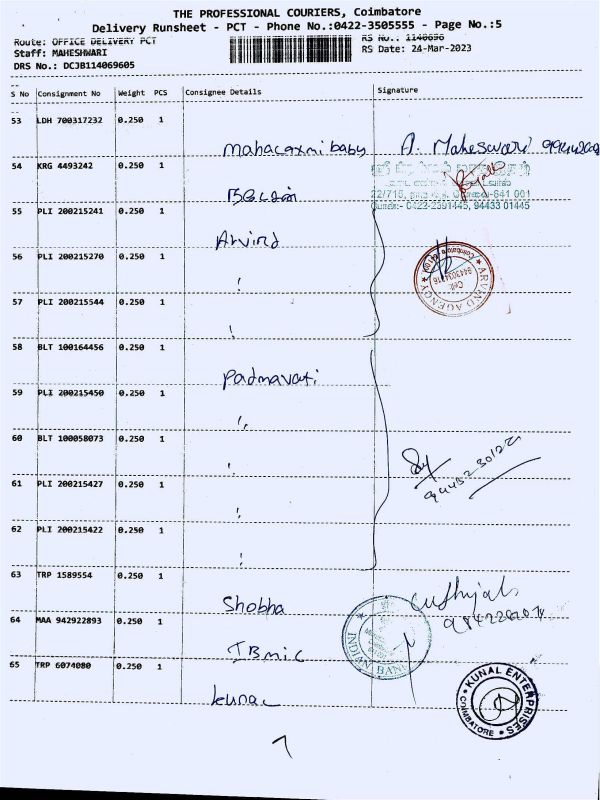 THE PROFESSIONAL COURIERS, Coimbatore
Delivery Runsheet - PCT - Phone No.:0422-3505555 - Page No.:5
Route: OFFICE DELIVERY PCT
RS No.: 1140696
Staff: MAHESHWARI
RS Date: 24-Mar-2023
DRS No.: DCJB114069605
S No Consignment No Weight PCS Consignee Details Signature
53 LDH 700317232 0.250 1
Mahalaxmi baby A. Maheswari
54 KRG 4493242 0.250 1
22/718, 641 001
0422-2391445, 94433 01445
55 PLI 200215241 0.250 1
Arvind
56 PLI 200215270 0.250 1
ARVIND AGENCY
Coimbatore
57 PLI 200215544 0.250 1
58 BLT 100164456 0.250 1
Padmavati
59 PLI 200215450 0.250 1
60 BLT 100058073 0.250 1
61 PLI 200215427 0.250 1
62 PLI 200215422 0.250 1
63 TRP 1589554 0.250 1
Shobha
64 MAA 942922893 0.250 1
INDIAN BANK
65 TRP 6074080 0.250 1
KUNAL ENTERPRISES
COIMBATORE